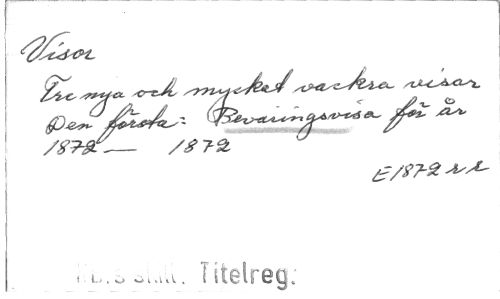 Visor
Tre nya och mycket vackra visor
Den första: Beväringsvisa för år
1872 — 1872
E 1872 rr
Titelreg.